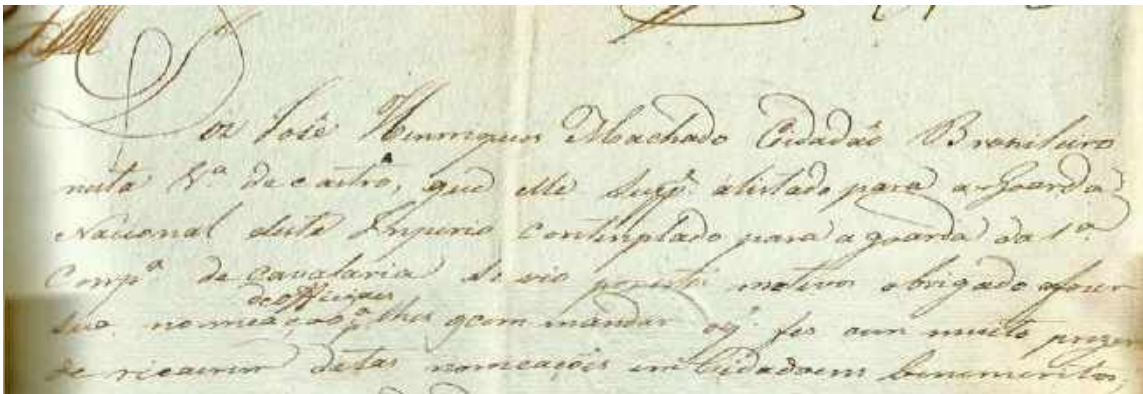 Diz José Henriques Machado Cidadaõ Brazileiro
nesta V.ª de castro, que elle Supp.e alistado para a Goarda
Nacional deste Imperio Contemplado para a goarda da 1.ª
Comp.ª de Cavalaria se vio por estes motivos obrigado afazer
de officiaes
sua nomeaçaõ lhes mandar oq.' fes com muito prazer
de recairem detas nomeaçoẽs em Cidadoens benemeritos,